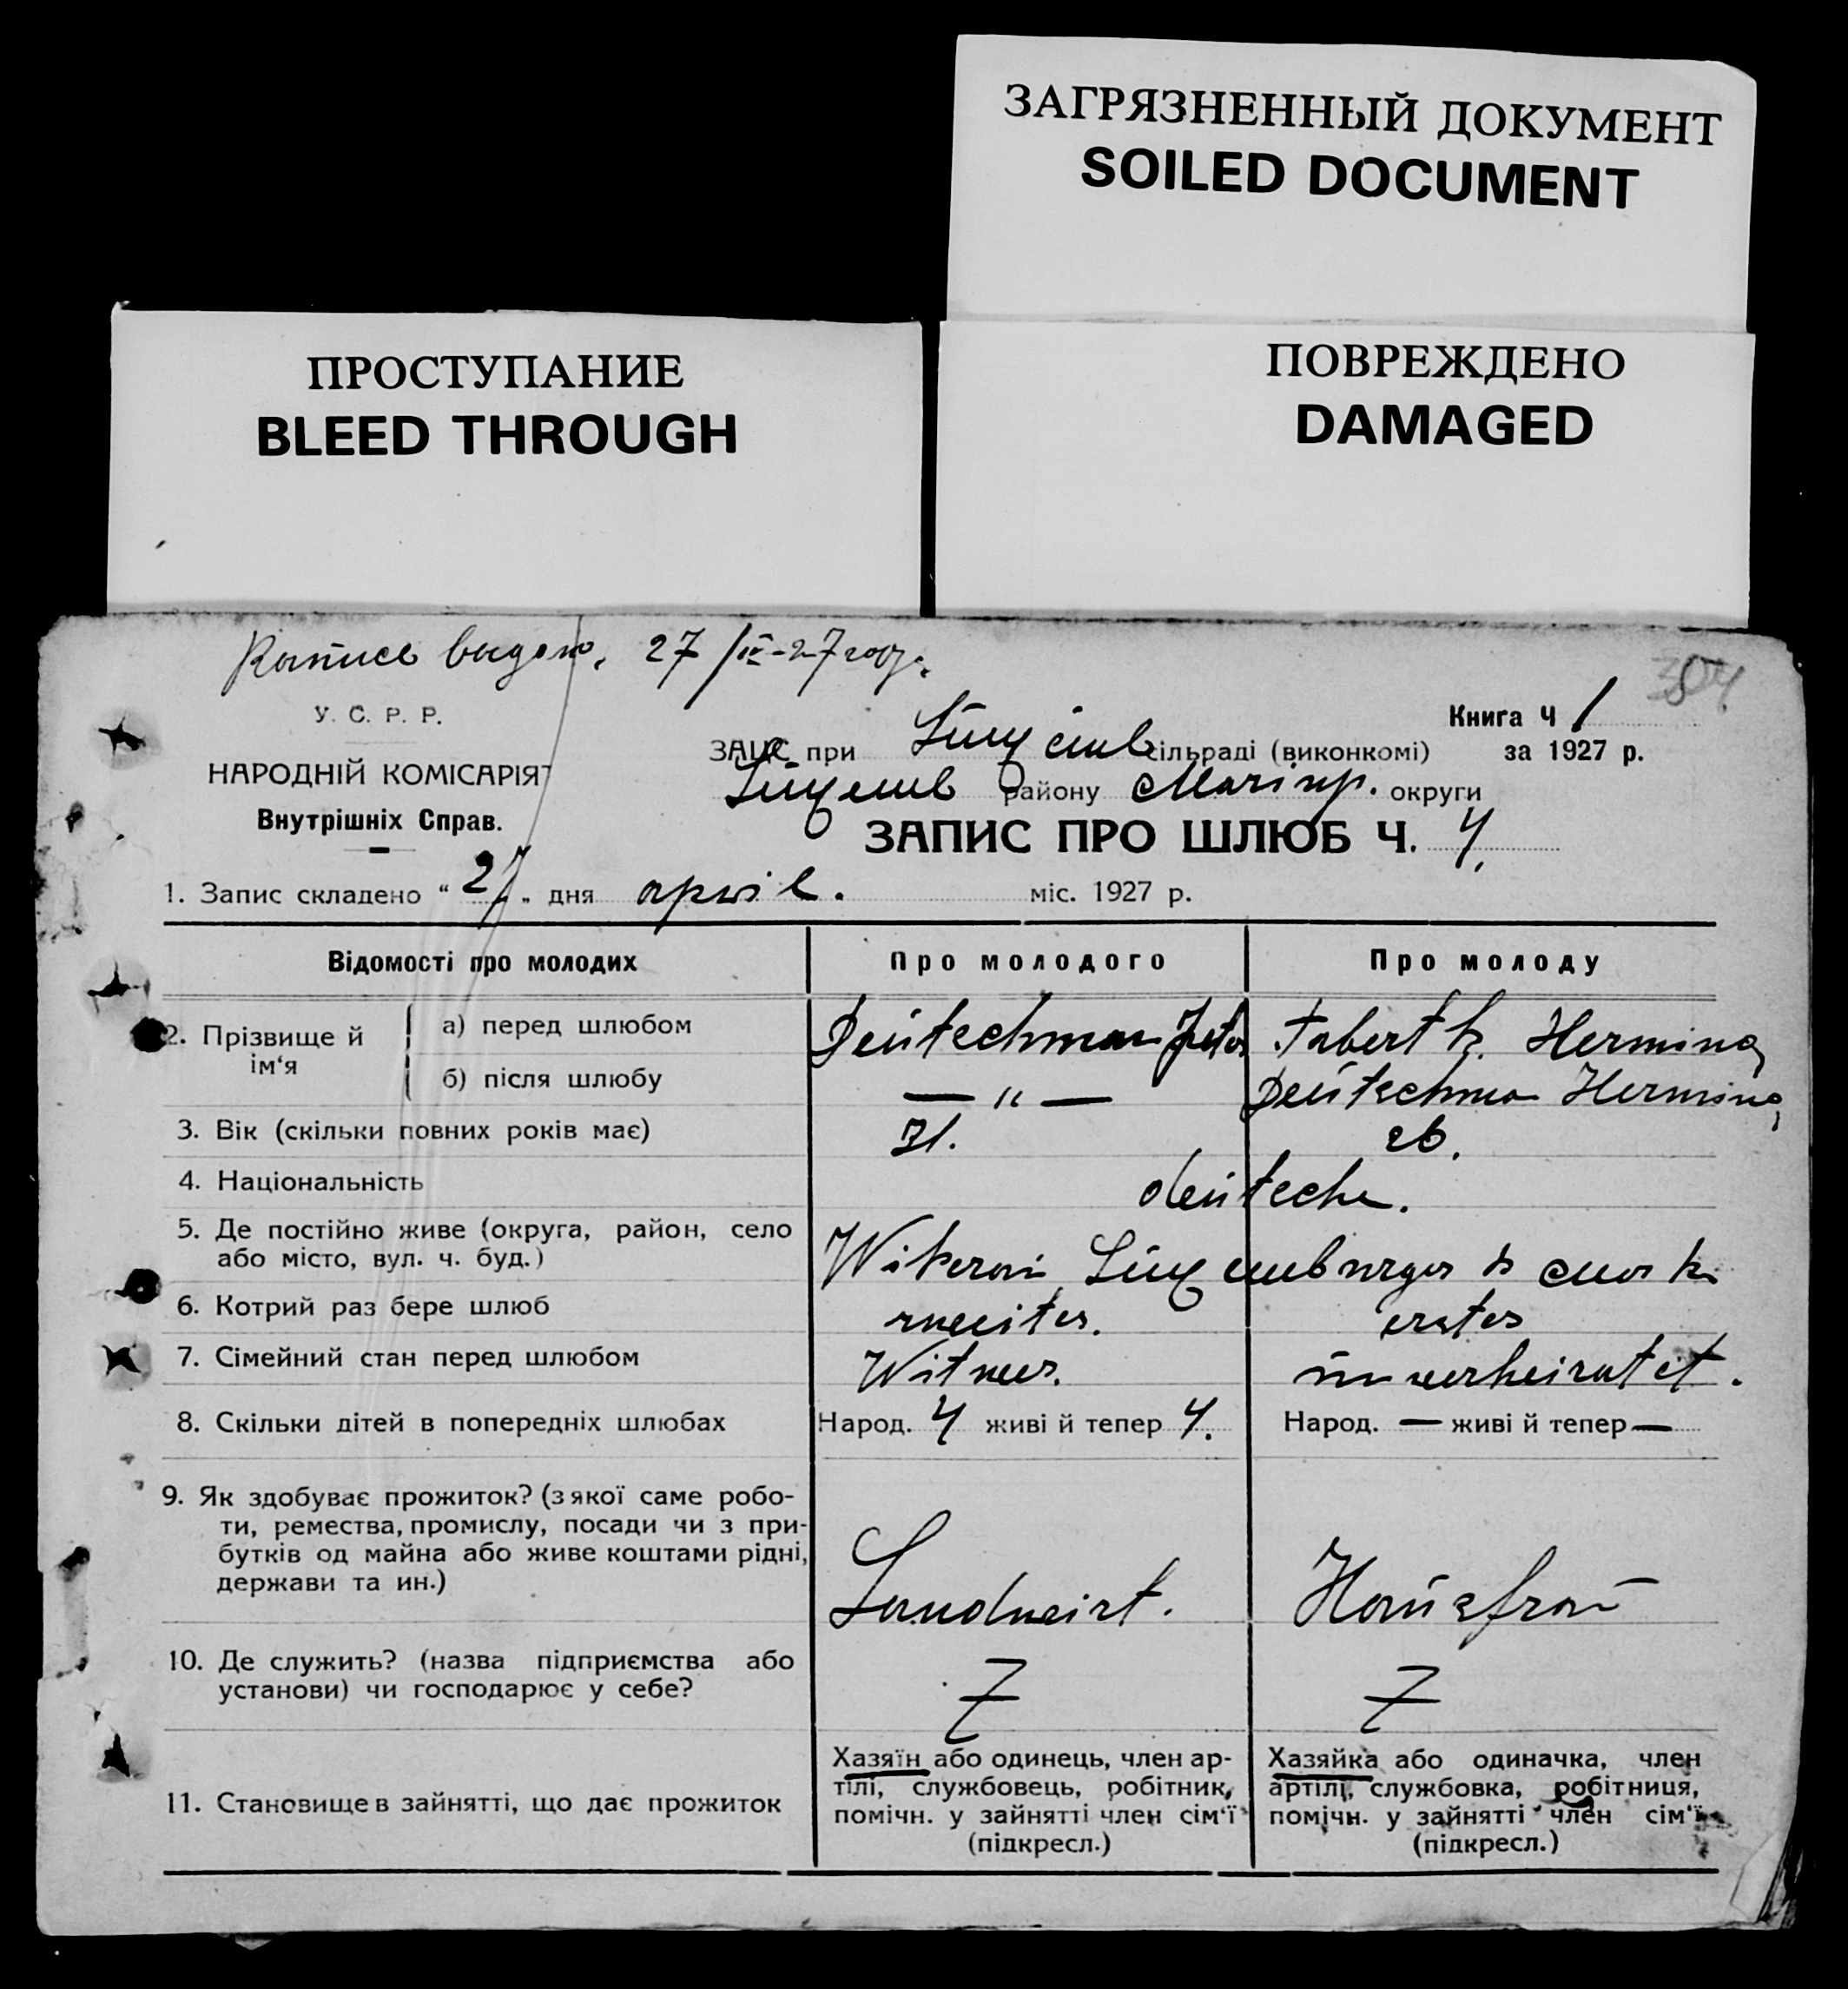 ЗАГРЯЗНЕННЫЙ ДОКУМЕНТ
SOILED DOCUMENT
ПРОСТУПАНИЕ
BLEED THROUGH
ПОВРЕЖДЕНО
DAMAGED
27/IV-27 года.
304
У. С. Р. Р.
НАРОДНІЙ КОМІСАРІЯТ
Внутрішніх Справ.
Книга Ч 1
ЗАЦС при сільраді (виконкомі) за 1927 р.
району Маріуп. округи
ЗАПИС ПРО ШЛЮБ Ч. 4.
1. Запис складено “ 27 „ дня april. міс. 1927 р.
Відомості про молодих
Про молодого
Про молоду
2. Прізвище й ім‘я
а) перед шлюбом Deutschman Peter Tabert k. Hermina
б) після шлюбу — " — Deutschman Hermina
3. Вік (скільки повних років має) 31. 26.
4. Національність deutsche.
5. Де постійно живе (округа, район, село
або місто, вул. ч. буд.)
6. Котрий раз бере шлюб zweites. erstes
7. Сімейний стан перед шлюбом Witwer. unverheiratet.
8. Скільки дітей в попередніх шлюбах Народ. 4 живі й тепер 4. Народ. — живі й тепер —
9. Як здобуває прожиток? (з якої саме робо-
ти, ремества, промислу, посади чи з при-
бутків од майна або живе коштами рідні,
держави та ин.) Landwirt. Hausfrau
10. Де служить? (назва підприємства або
установи) чи господарює у себе?
11. Становище в зайнятті, що дає прожиток
Хазяїн або одинець, член ар-
тілі, службовець, робітник,
помічн. у зайнятті член сім‘ї
(підкресл.)
Хазяйка або одиначка, член
артілі, службовка, робітниця,
помічн. у зайнятті член сім‘ї
(підкресл.)